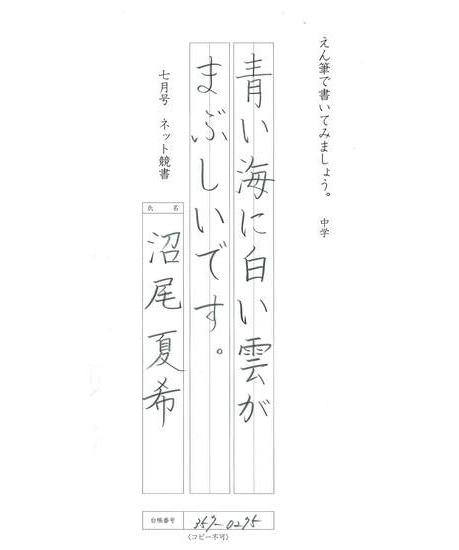 えん筆で書いてみましょう。 中学
青い海に白い雲が
まぶしいです。
七月号 ネット競書
氏名
沼尾夏希
台帳番号 359-0275
(コピー不可)